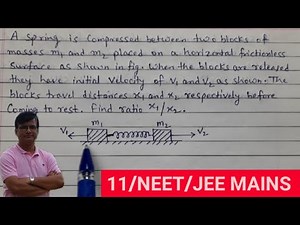 A spring is compressed between two blocks of
masses m1 and m2 placed on a horizontal frictionless
surface as shown in fig. When the blocks are released
they have initial velocity of V1 and V2 as shown. The
blocks travel distances x1 and x2 respectively before
coming to rest. Find ratio x1/x2.
V1 m1 m2 V2
11/NEET/JEE MAINS